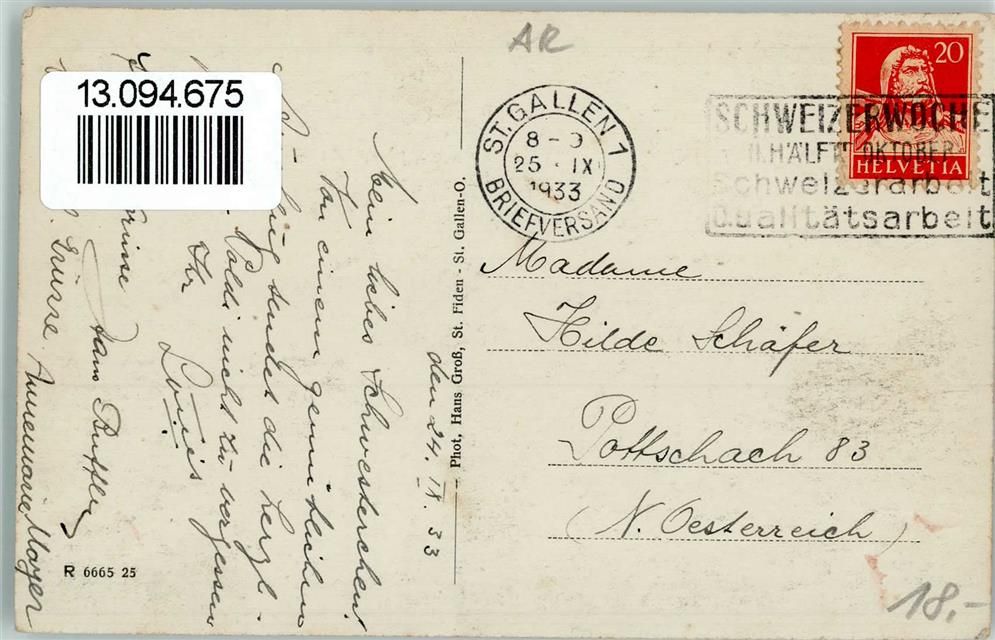 AR
13.094.675
20
HELVETIA
ST. GALLEN 1
8-9
25. IX
1933
BRIEFVERSAND
SCHWEIZERWOCHE
II. HÄLFTE OKTOBER
Schweizerarbeit
Qualitätsarbeit
Madame
Hilde Schäfer
Pottschach 83
(N. Oesterreich)
Phot, Hans Groß, St. Fiden - St. Gallen-O.
den 24. IX. 33
Mein liebes Schwesterchen!
Von einem gemütlichen
sendet die herzl.-
Poldi nicht zu vergessen
Ihr
Luis
Grüsse
Annemarie Mayer
R 6665 25
18.-